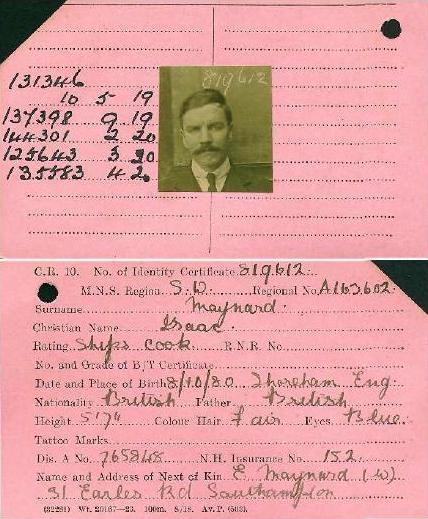 131346
10 5 19
137398 9 19
144301 2 20
125643 3 20
135583 4 20
819612
C.R. 10. No. of Identity Certificate 819612
M.N.S. Region S.W. Regional No. A163602
Surname Maynard
Christian Name Isaac
Rating Ships Cook R.N.R. No.
No. and Grade of B/T Certificate
Date and Place of Birth 8/10/80 Shoreham Eng
Nationality British Father British
Height 5'7¼ Colour Hair Fair Eyes Blue
Tattoo Marks
Dis. A No. 765848 N.H. Insurance No. 152
Name and Address of Next of Kin E. Maynard (W)
31 Earles Rd Southampton
(32261) Wt. 20167—23. 100m. 8/18. Av. P. (503).